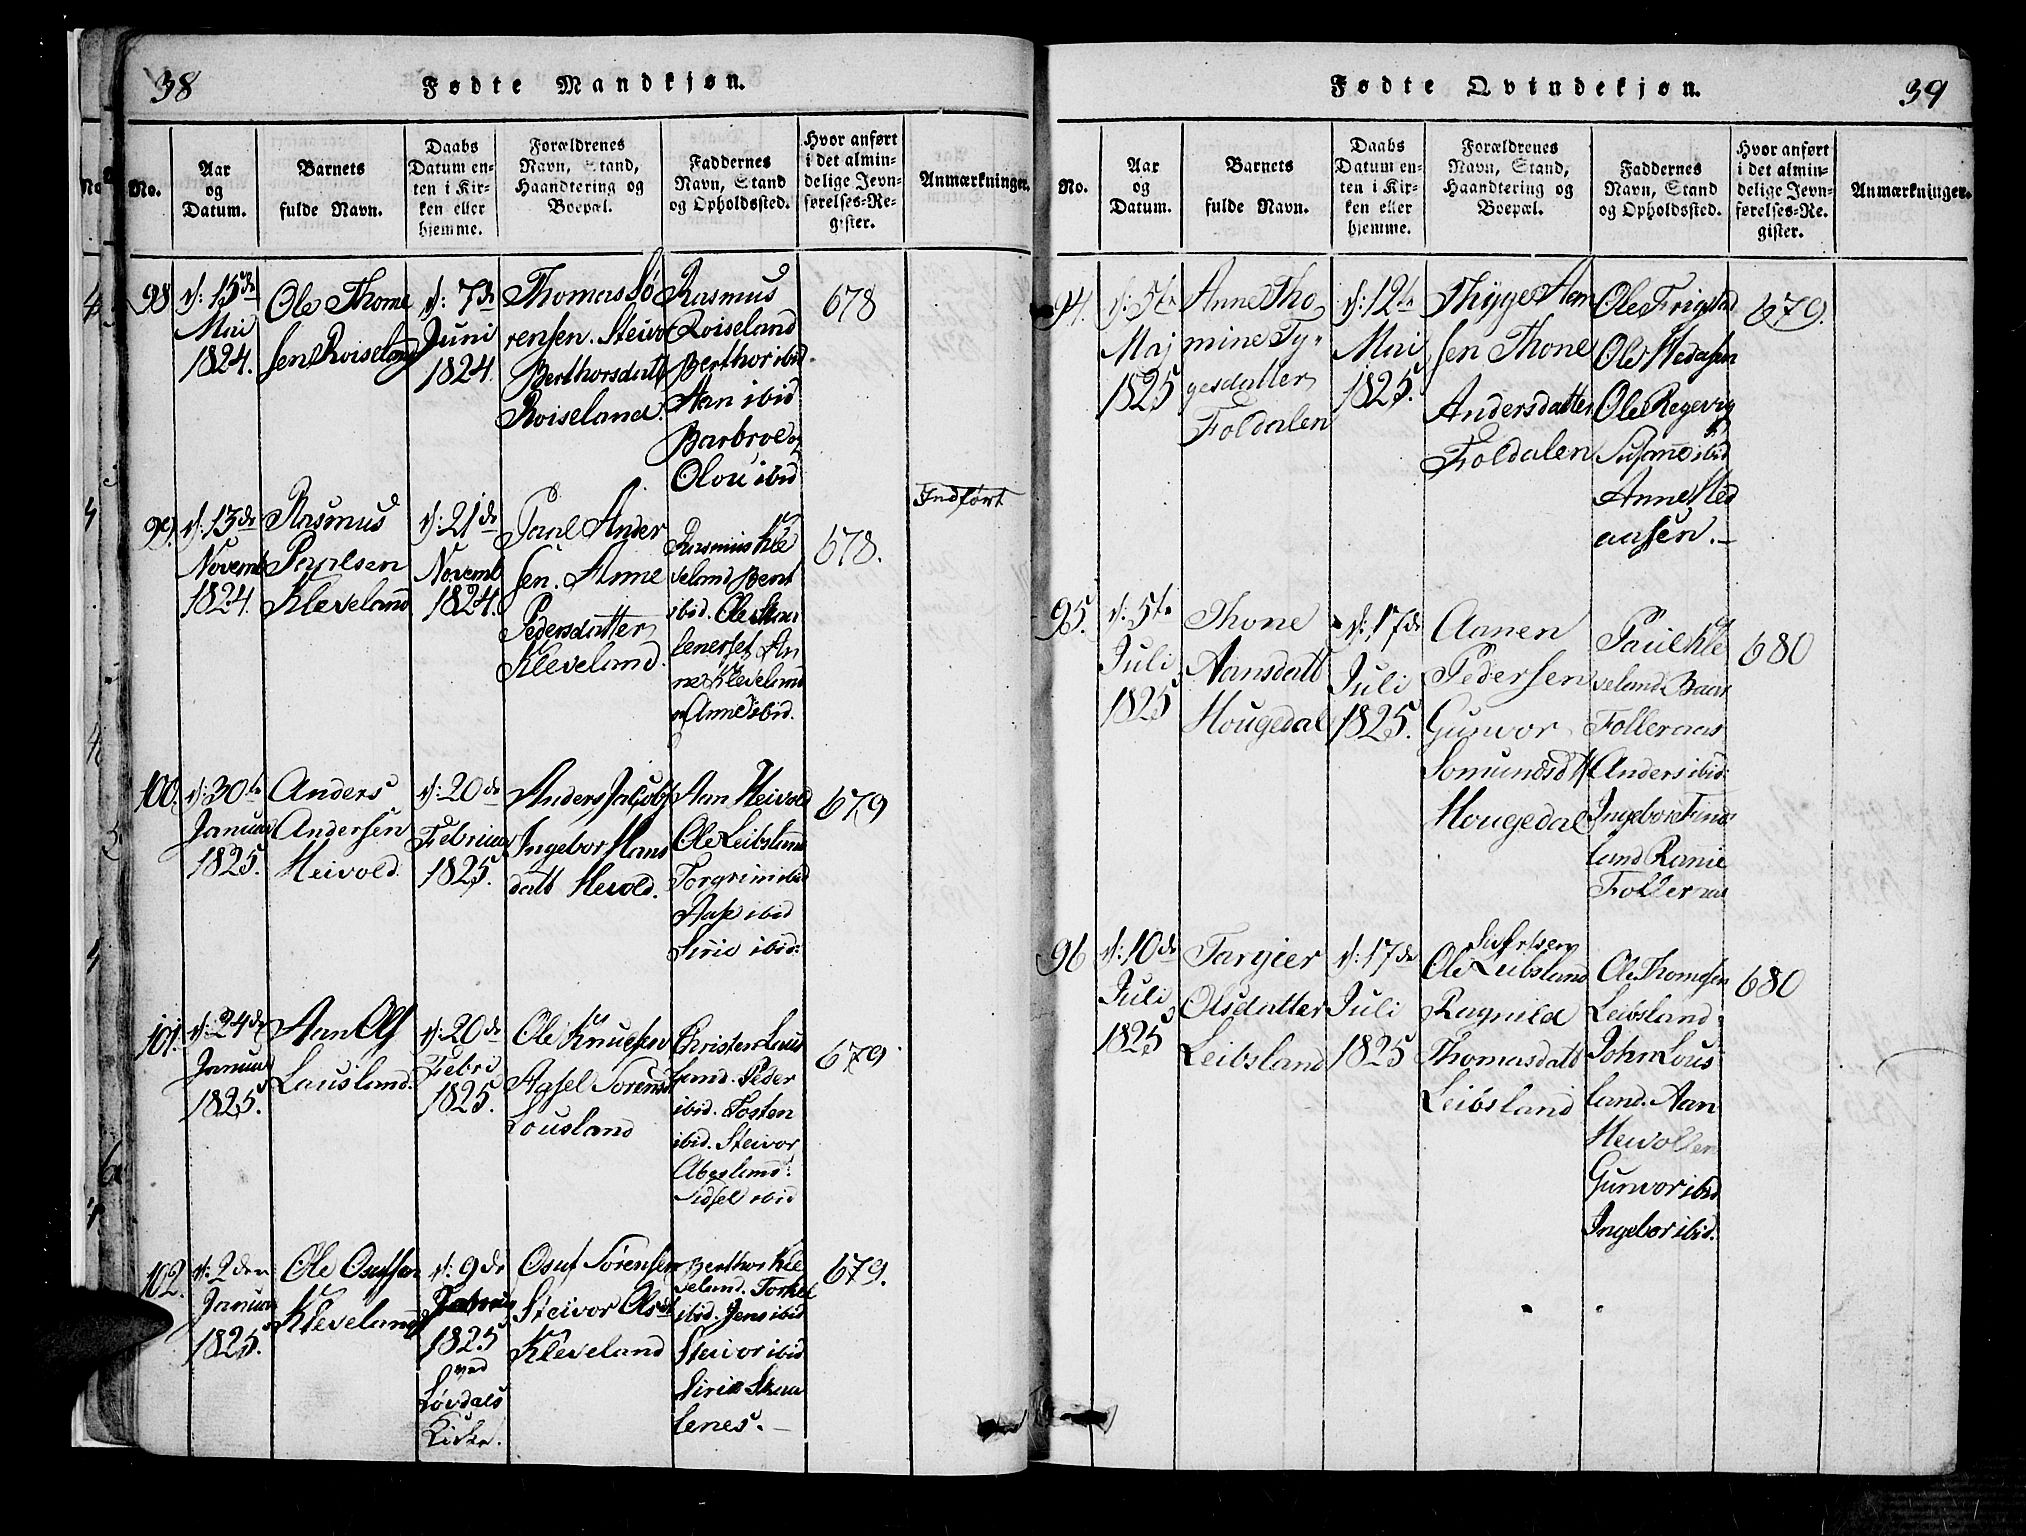 38
Fødte Mandkjøn.
No.
Aar
og
Datum.
Barnets
fulde Navn.
Daabs
Datum en-
ten i Kir-
ken eller
hjemme.
Forældrenes
Navn, Stand,
Haandtering og
Boepæl.
Faddernes
Navn, Stand
og Opholdssted.
Hvor anført
i det almin-
delige Jevn-
førelses-Re-
gister.
Anmærkninger.
98
d: 15de
Mai
1824.
Ole Thome
sen Roiseland
d: 7de
Juni
1824.
Thomas Sø
rensen. Steivor
Berthorsdatt
Roiseland.
Rasmus
Roiseland
Berthor ibid.
Aan ibid
Barbroe og
Olou ibid
678
99.
d: 13de
Novemb
1824.
Rasmus
Paulsen
Kleveland
d: 21de
Novemb
1824.
Paul Ander
sen. Anne
Pedersdatter
Kleveland.
Rasmus Kle
veland Bent
ibid. Ole Skaa
lenerset An
ne Kleveland
og Anne ibid.
678.
Indført
100.
d: 30te
Januar
1825.
Anders
Andersen
Heivold.
d: 20de
Februar
1825.
Anders Jacobs
Ingebor Hans
datt Heivold.
Aan Heivold
Ole Leibsland
Torgrim ibid
Aase ibid
Sirie ibid:
679
101.
d: 24de
Januar
1825.
Aan Ols
Lausland.
d: 20de
Febru
1825.
Ole Knudsen
Axsel Sorensd
Lousland
Christen Laus
land. Peder
ibid. Tosten
ibid. Steivor
Abesland.
Sidsel ibid
679
102.
d: 2den
Januar
1825.
Ole Osufsen
Kleveland
d: 9de
Januar
1825
ved
Løvdals
Kirke.
Osuf Sørensen
Steivor Olsdt
Kleveland
Berthor Kle
veland. Torkel
ibid. Jens ibid
Steivor ibid
Sirie Skaa
lenes.
679.
39
Fødte Qvindekjøn.
No.
Aar
og
Datum.
Barnets
fulde Navn.
Daabs
Datum en-
ten i Kir-
ken eller
hjemme.
Forældrenes
Navn, Stand,
Haandtering og
Boepæl.
Faddernes
Navn, Stand
og Opholdssted.
Hvor anført
i det almin-
delige Jevn-
førelses-Re.
gister.
Anmærkninger.
94.
d: 5te
Maj
1825
Anne Tho
mine Ty-
gesdatter
Foldalen
d: 12te
Mai
1825.
Thyge Aan
sen Thone
Andersdatter
Foldalen
Ole Frigstad
Ole Stedasen
Ole Regevig
Susane ibid
Anne Sted
aasen.
679.
95.
d: 5te
Juli
1825
Thone
Aansdatt
Hougedal
d: 17de
Juli
1825.
Aanen
Pedersen
Gunvor
Somundsdtt
Hougedal
Paul Kle
veland. Baar
Folleraas
Anders ibid:
Ingebor Finds
land Ranie
Folleraas
680
96
d: 10de
Juli
1825
Targier
Olsdatter
Leibsland
d: 17de
Juli
1825
Sivertsen
Ole Leibsland
Ragnild
Thomasdatt
Leibsland
Ole Thomesen
Leibsland.
John Lous
land. Aan
Heivollen
Gunvor ibid
Ingebor ibid.
680